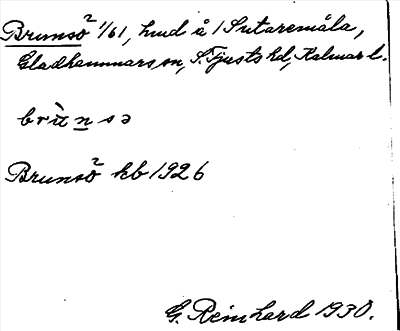 Brunsö² 1/61, hmd å 1 Sutaremåla,
Gladhammars sn, S. Tjusts hd, Kalmar l.
brùnsə
Brunsö² kb 1926
G. Reinhard 1930.